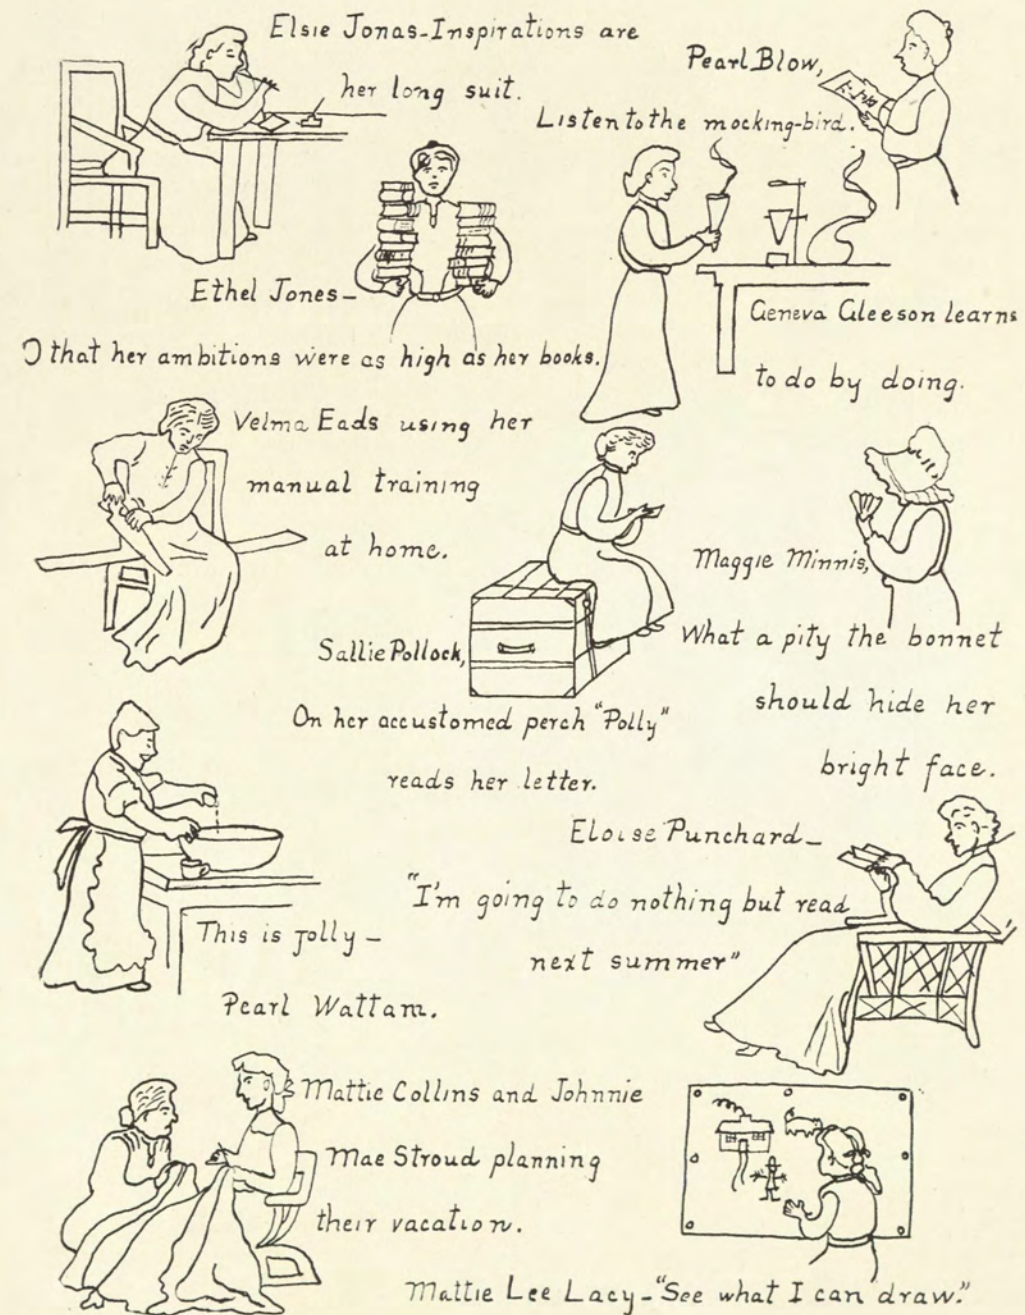 Elsie Jonas-Inspirations are
her long suit.
Pearl Blow,
Listen to the mocking-bird.
Ethel Jones-
O that her ambitions were as high as her books.
Geneva Gleeson learns
to do by doing.
Velma Eads using her
manual training
at home.
Sallie Pollock,
On her accustomed perch "Polly"
reads her letter.
Maggie Minnis,
What a pity the bonnet
should hide her
bright face.
This is jolly-
Pearl Wattam.
Eloise Punchard-
"I'm going to do nothing but read
next summer"
Mattie Collins and Johnnie
Mae Stroud planning
their vacation.
Mattie Lee Lacy-"See what I can draw."